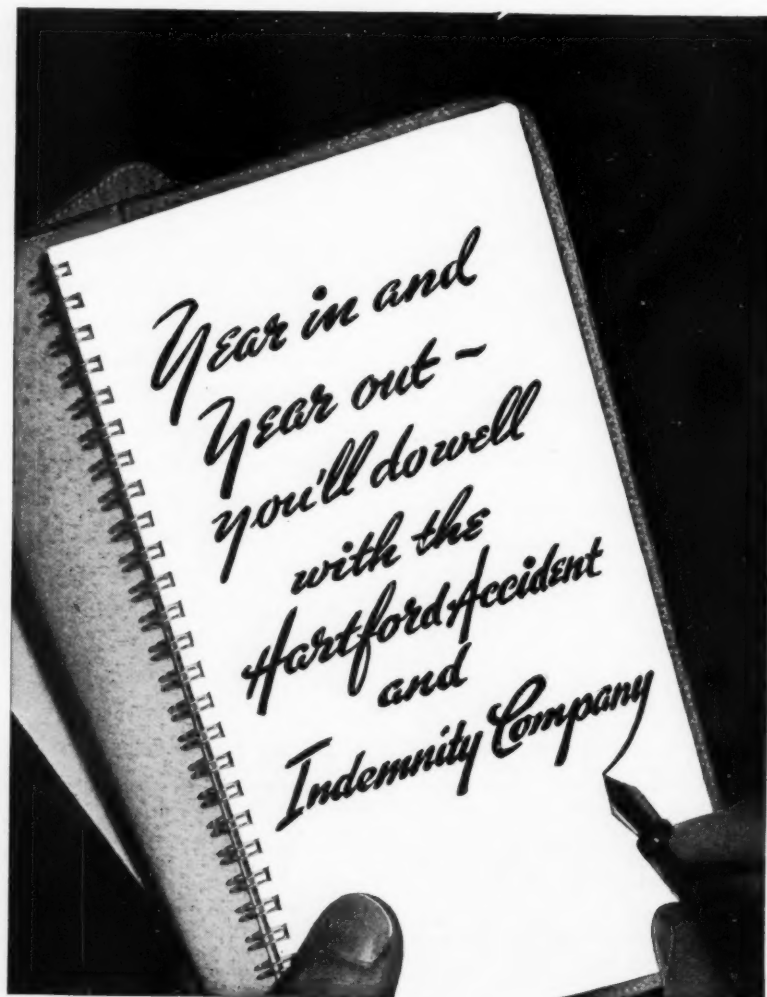 Year in and
Year out ~
you'll do well
with the
Hartford Accident
and
Indemnity Company